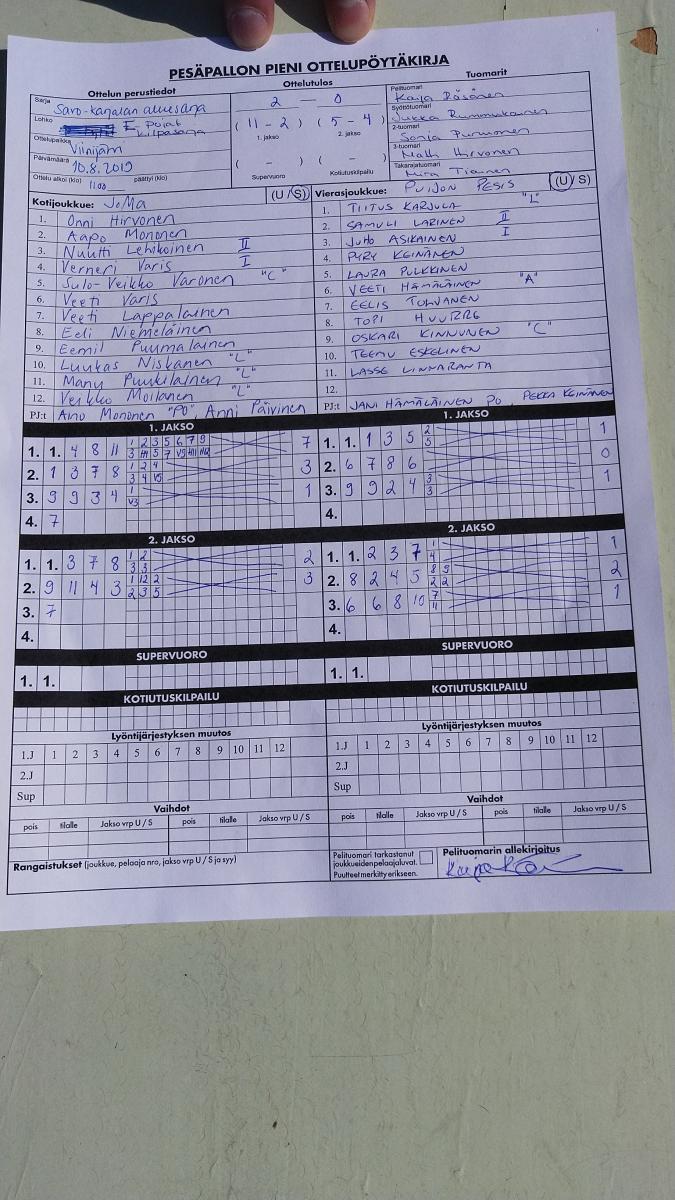 PESÄPALLON PIENI OTTELUPÖYTÄKIRJA
Ottelun perustiedot
Ottelutulos
Tuomarit
Sarja
Savo-karjalan aluesarja
Lohko
E pojat kilpasarja
Ottelupaikka
Viinijärvi
Päivämäärä
10.8.2019
Ottelu alkoi (klo) 11.00 päättyi (klo)
2 — 0
( 11 - 2 ) ( 5 - 4 )
1. jakso 2. jakso
( - ) ( - )
Supervuoro Kotiutuskilpailu
Pelituomari
Kaija Räsänen
Syöttötuomari
Jukka
2-tuomari
Sonja Purmonen
3-tuomari
Matti Hirvonen
Takarajatuomari
Tiainen
Kotijoukkue: JoMa (U / S)
1. Onni Hirvonen
2. Aapo Mononen
3. Nuutti Lehikoinen II
4. Verneri Varis I
5. Sulo-Veikko Varonen "C"
6. Veeti Varis
7. Veeti Lappalainen
8. Eeli Niemeläinen
9. Eemil Puumalainen
10. Luukas Niskanen "L"
11. Manu Puukilainen "L"
12. Veikko Moilanen "L"
PJ:t Aino Mononen "PO", Anni Päivinen
Vierasjoukkue: PUIJON PESIS (U / S)
1. TIITUS KARJULA "L"
2. SAMULI LARINEN II
3. JUHO ASIKAINEN I
4. PYRY KEINÄNEN
5. LAURA PULKKINEN
6. VEETI HÄMÄLÄINEN "A"
7. EELIS TOLVANEN
8. TOPI HUURRE
9. OSKARI KINNUNEN "C"
10. TEEMU ESKELINEN
11. LASSE LINNARANTA
12.
PJ:t JANI HÄMÄLÄINEN PO, PEKKA KEINÄNEN
1. JAKSO
1. 1. 4 8 11 1 2 3 5 6 7 9 7
2. 1 3 7 8 1 2 4 3
3 4 V5
3. 9 9 3 4 1 1
V3
4. 7
1. JAKSO
1. 1. 1 3 5 2 1
5
2. 6 7 8 6 0
3. 9 9 2 4 3 1
3
4.
2. JAKSO
1. 1. 3 7 8 1 2 2
3 3
2. 9 11 4 3 1 12 2 3
2 3 5
3. 7
4.
2. JAKSO
1. 1. 2 3 7 1 1
4
2. 8 2 4 5 8 9 2
2 2
3. 6 6 8 10 7 1
11
4.
SUPERVUORO
1. 1.
SUPERVUORO
1. 1.
KOTIUTUSKILPAILU
KOTIUTUSKILPAILU
Lyöntijärjestyksen muutos
1.J 1 2 3 4 5 6 7 8 9 10 11 12
2.J
Sup
Lyöntijärjestyksen muutos
1.J 1 2 3 4 5 6 7 8 9 10 11 12
2.J
Sup
Vaihdot
pois tilalle Jakso vrp U / S pois tilalle Jakso vrp U / S
Vaihdot
pois tilalle Jakso vrp U / S pois tilalle Jakso vrp U / S
Rangaistukset (joukkue, pelaaja nro, jakso vrp U / S ja syy)
Pelituomari tarkastanut
joukkueiden pelaajaluvat.
Puutteet merkitty erikseen.
Pelituomarin allekirjoitus